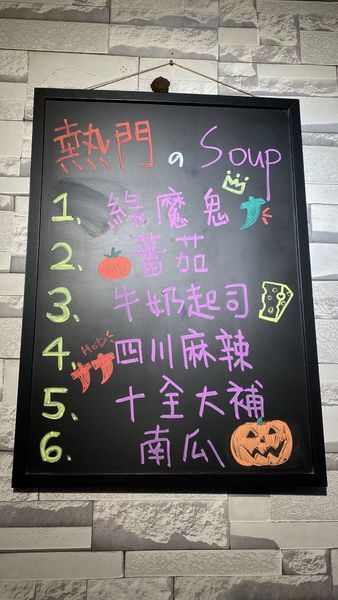 熱門の Soup
1、綠魔鬼
2、蕃茄
3、牛奶起司
Hot
4、四川麻辣
5、十全大補
6、南瓜